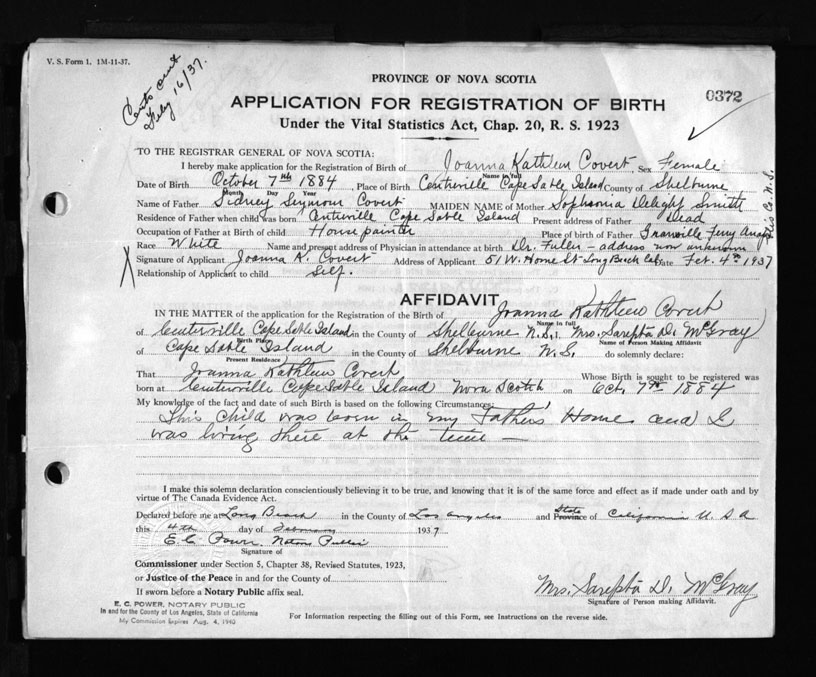 V. S. Form 1. 1M-11-37.
Feby 16/37.
PROVINCE OF NOVA SCOTIA
APPLICATION FOR REGISTRATION OF BIRTH
0372
Under the Vital Statistics Act, Chap. 20, R. S. 1923
TO THE REGISTRAR GENERAL OF NOVA SCOTIA:
I hereby make application for the Registration of Birth of Joanna Kathleen Covert Sex Female
Name in full
Date of Birth October 7th 1884 Place of Birth Centreville Cape Sable Island County of Shelburne
Month Day Year
Name of Father Sidney Seymour Covert MAIDEN NAME of Mother Sophronia Delight Smith
Residence of Father when child was born Centreville Cape Sable Island Present address of Father Dead
Occupation of Father at Birth of child House painter Place of birth of Father Granville Ferry Annapolis Co. N.S.
Race White Name and present address of Physician in attendance at birth Dr. Fuller - address now unknown
Signature of Applicant Joanna K. Covert Address of Applicant 51 W. Home St Long Beach Cal Date Feb. 4th 1937
Relationship of Applicant to child Self.
AFFIDAVIT
IN THE MATTER of the application for the Registration of the Birth of Joanna Kathleen Covert
Name in full
of Centerville Cape Sable Island in the County of Shelburne N.S., I, Mrs. Sarepta D. McGray
Birth Place
Name of Person Making Affidavit
of Cape Sable Island in the County of Shelburne N.S. do solemnly declare:
Present Residence
That Joanna Kathleen Covert Whose Birth is sought to be registered was
born at Centerville Cape Sable Island Nova Scotia on Oct. 7th 1884
My knowledge of the fact and date of such Birth is based on the following Circumstances:
This child was born in my Fathers' Home and I
was living there at the time —
I make this solemn declaration conscientiously believing it to be true, and knowing that it is of the same force and effect as if made under oath and by
virtue of The Canada Evidence Act.
Declared before me at Long Beach in the County of Los Angeles and State Province of California U.S.A
this 4th day of February 1937
E. C. Power. Notary Public
Signature of
Commissioner under Section 5, Chapter 38, Revised Statutes, 1923,
or Justice of the Peace in and for the County of
If sworn before a Notary Public affix seal.
Mrs. Sarepta D. McGray
Signature of Person making Affidavit.
E. C. POWER, NOTARY PUBLIC
In and for the County of Los Angeles, State of California
My Commission Expires Aug. 4, 1940
For Information respecting the filling out of this Form, see Instructions on the reverse side.